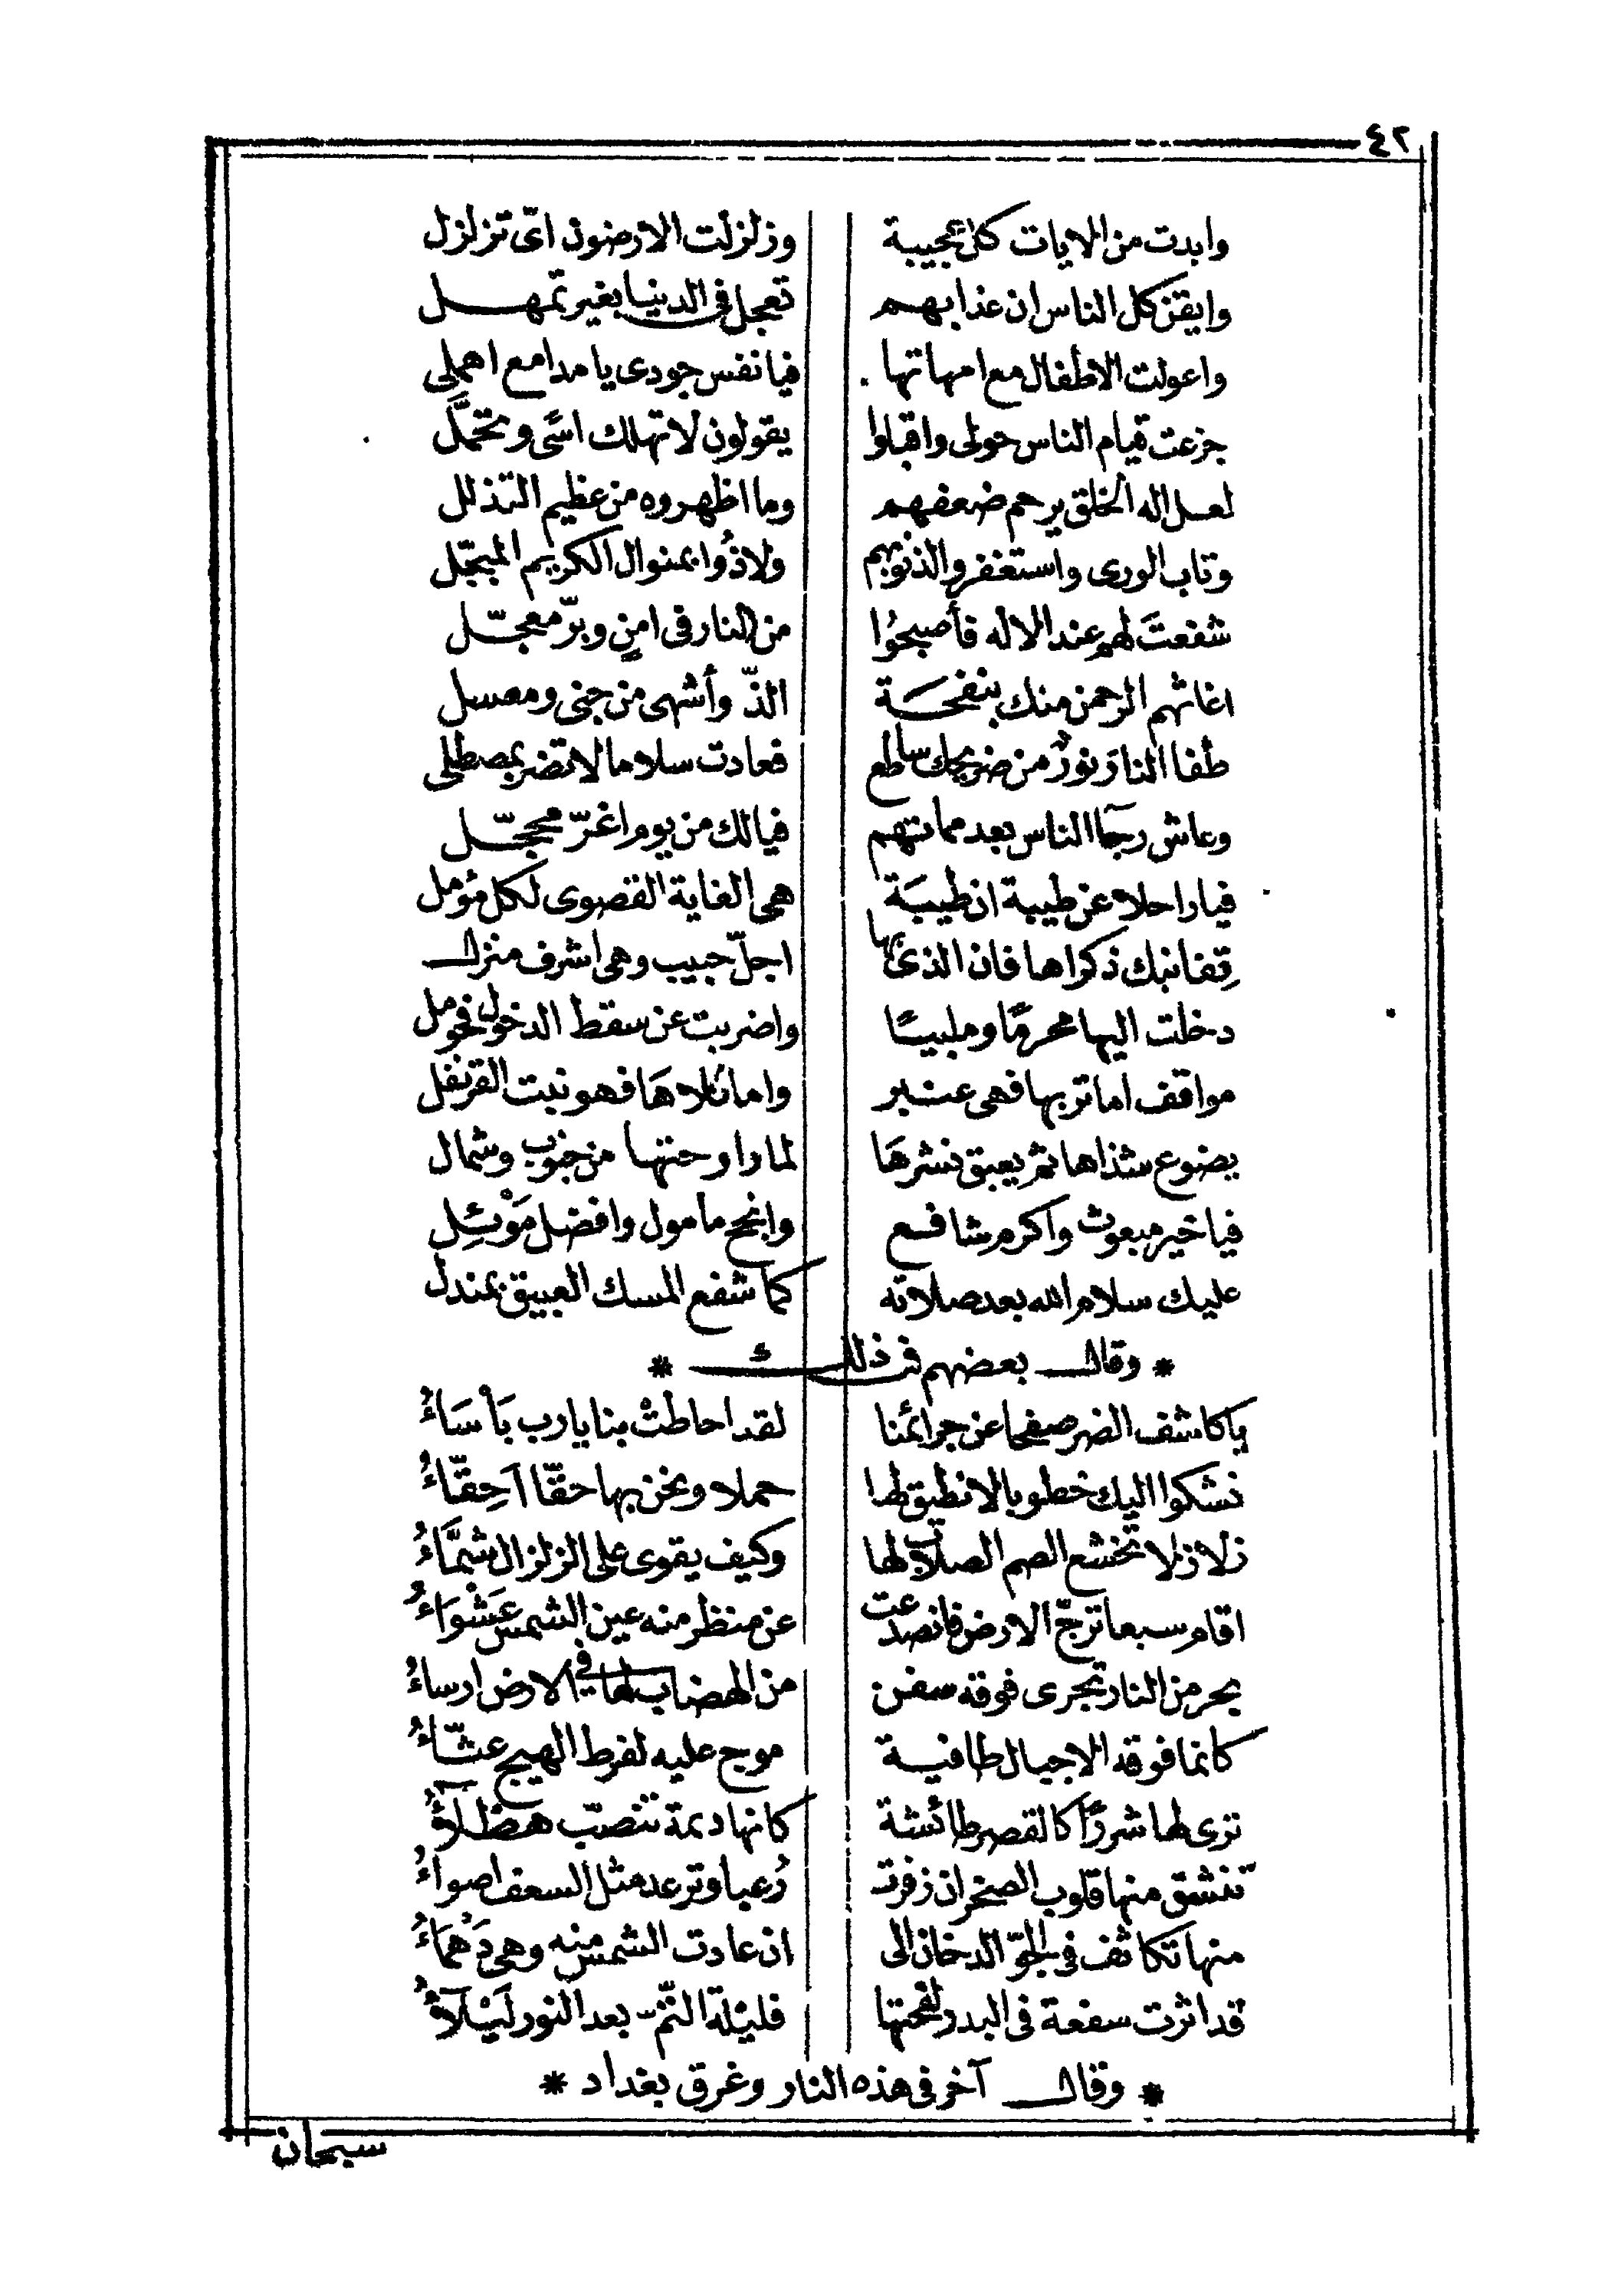 ٤٢
وابدت من الايات كل عجيبة وزلزلت الارضون اىّ تزلزل
وايقن كل الناس ان عذابهم تعجل فى الدنيا بغير تمهل
واعولت الاطفال مع امهاتها فيا نفس جودى يا مدامع اهملى
جزعت قيام الناس حولى واقبلوا يقولون لا تهلك اسًى وتحمَّل
لعل اله الخلق يرحم ضعفهم وما اظهروه من عظيم التذلل
وتاب الورى واستغفروا لذنوبهم ولاذُوا بمنوال الكريم المبجّل
شفعتَ لهم عند الاله فأصبحُوا من النار فى امنٍ وبرّ معجّل
اغاثهم الرحمن منك بنفحة الذّ وأشهى من جنى ومعسل
طفا النارَ نورٌ من ضريحك ساطع فعادت سلاما لا تضر بمصطلى
وعاش رجا الناس بعد مماتهم فيالك من يوم اغرّ محجّل
فيا راحلا عن طيبة ان طيبَة هى الغاية القصوى لكل مؤمل
قِفا نبك ذكراها فان الذى بها اجلّ حبيب وهى اشرف منزل
دخلت اليها محرمًا وملبيًا واضربت عن سقط الدخول فحومل
مواقف اما تربها فهى عنبر واما كلاهَا فهو نبت القرنفل
يضوع شذاها ثم يعبق نشرهَا لما راوحتها من جنوب وشمال
فيا خير مبعوث واكرم شافع وانجح مأمول وافضل مَوْئِل
عليك سلام الله بعد صلاته كما شفع المسك العبيق بمندل
* وقال بعضهم فى ذلك *
يا كاشف الضر صفحا عن جرائمنا لقد احاطتْ بنا يا رب بَأْسَاءُ
نشكوا اليك خطوبا لا نطيق لها حملا ونحن بها حقّا اَحِقّاءُ
زلازلا تخشع الصم الصلاب لها وكيف يقوى على الزلزال شمَّاءُ
اقام سبعا ترجّ الارض فانصدعت عن منظر منه عين الشمس عَشْوَاءُ
بحر من النار تجرى فوقه سفن من الهضاب لها فى الارض ارساءُ
كانما فوقه الاجبال طافية موج عليه لفرط الهيج عثّاءُ
ترى لها شررًا كالقصر طائشة كانها ديمة تنصبّ هطلآءُ
تنشق منها قلوب الصخر ان زفرت رُعبا وترعد مثل السعف اضواءُ
منها تكاثف فى الجوّ الدخان الى ان عادت الشمس منه وهى دَهْمَاءُ
قد اثرت سفعة فى البدر لفحتها فليْلة التّمّ بعد النور لَيْلآءُ
* وقال آخر فى هذه النار وغرق بغداد *
سبحان